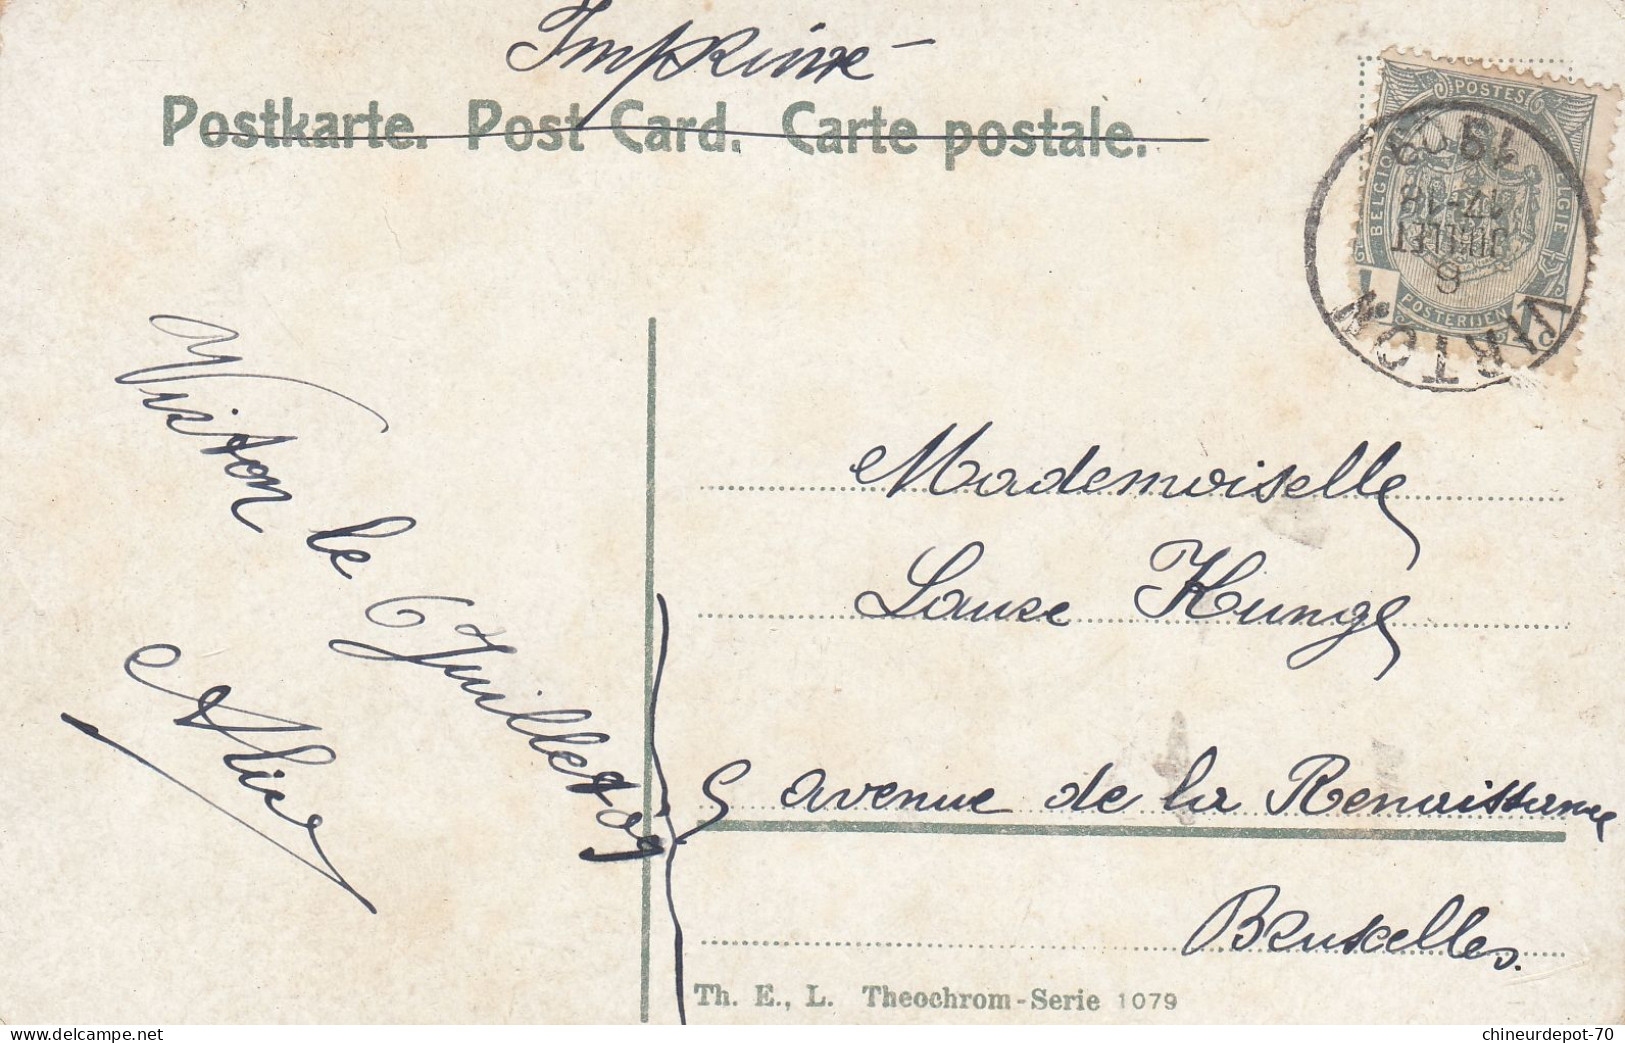 Imprimé
Postkarte. Post Card. Carte postale.
POSTES
BELGIQUE
BELGIE
POSTERIJEN
1
1
VIRTON
6
JUILLET
17-18
1909
Virton le 6 Juillet 09
Mademoiselle
Laure Kunge
5 avenue de la Renaissance
Bruxelles.
Th. E., L. Theochrom-Serie 1079
www.delcampe.net
chineurdepot-70